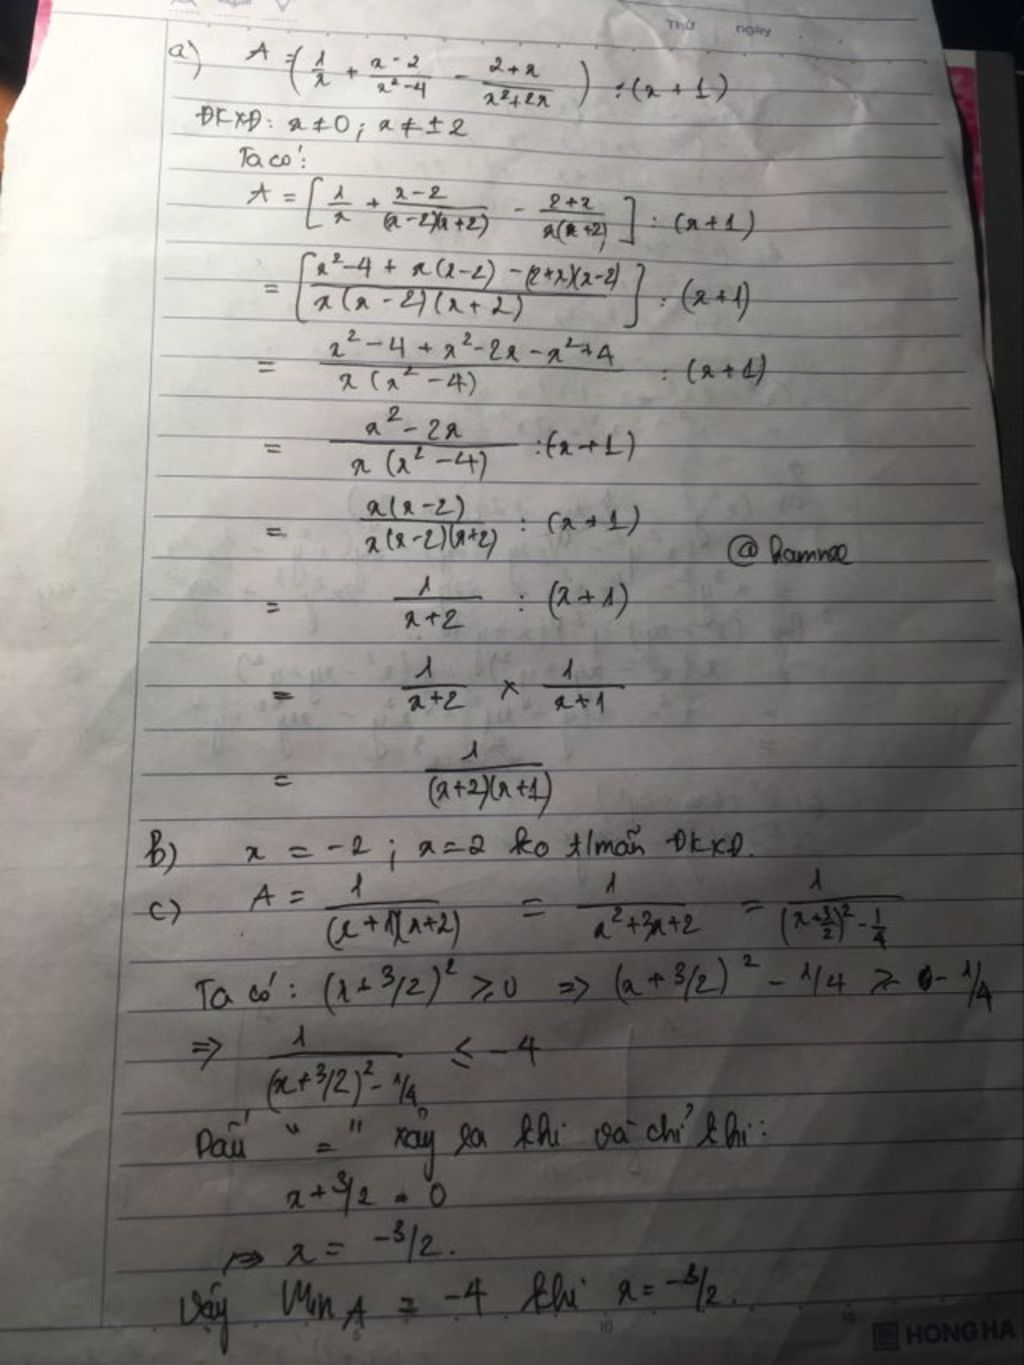 Thứ ngày
a) A = (1/x + x-2/x²-4 - 2+x/x²+2x) : (x+1)
ĐKXĐ: x≠0; x≠±2
Ta có:
A = [1/x + x-2/(x-2)(x+2) - 2+x/x(x+2)] : (x+1)
= [x²-4 + x(x-2) - (2+x)(x-2)/x(x-2)(x+2)] : (x+1)
= x²-4+x²-2x-x²+4/x(x²-4) : (x+1)
= x²-2x/x(x²-4) : (x+1)
= x(x-2)/x(x-2)(x+2) : (x+1)
@
= 1/x+2 : (x+1)
= 1/x+2 × 1/x+1
= 1/(x+2)(x+1)
b) x = -2; x=2 ko t/mãn ĐKXĐ.
c) A = 1/(x+1)(x+2) = 1/x²+3x+2 = 1/(x+3/2)²-1/4
Ta có: (x+3/2)² ≥ 0 => (x+3/2)² - 1/4 ≥ 0-1/4
=> 1/(x+3/2)²-1/4 ≤ -4
Dấu "=" xảy ra khi và chỉ khi:
x+3/2 = 0
=> x = -3/2.
Vậy Min A = -4 khi x = -3/2.
5 10 15
HONG HA